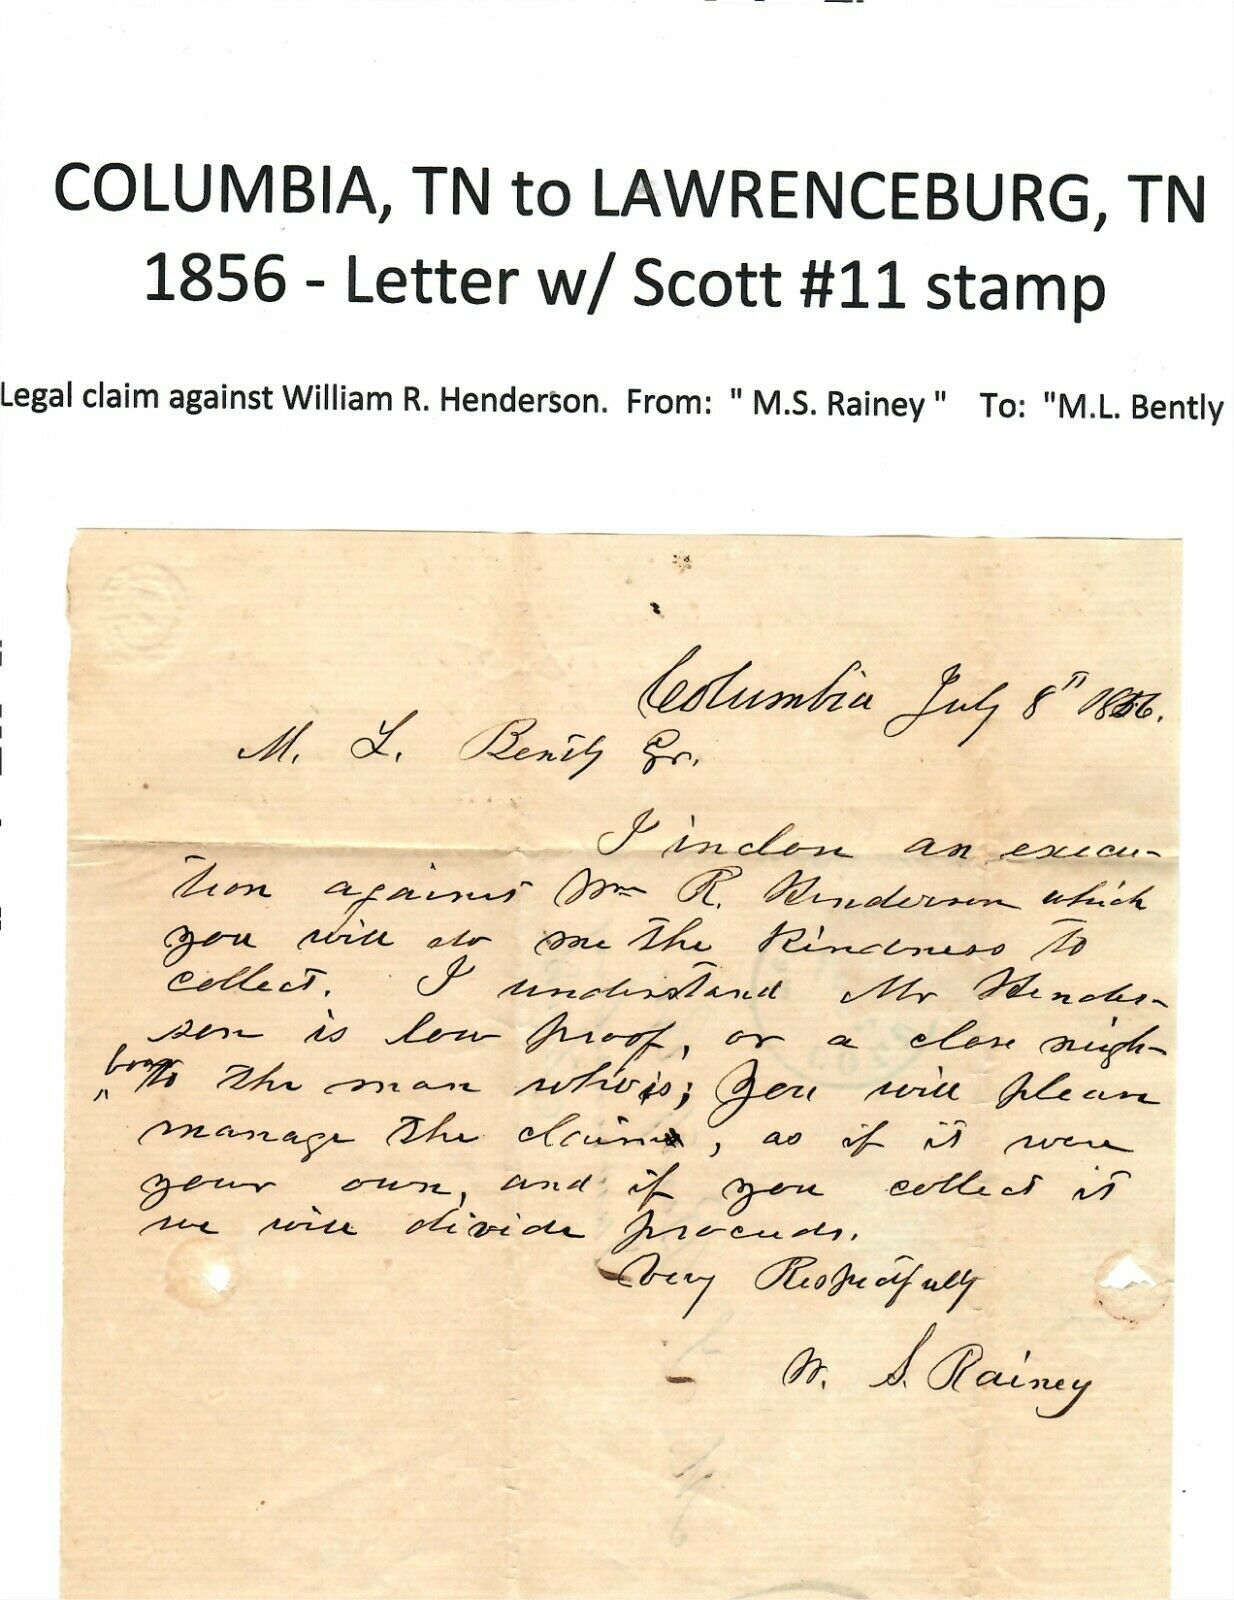 COLUMBIA, TN to LAWRENCEBURG, TN
1856 - Letter w/ Scott #11 stamp
Legal claim against William R. Henderson. From: " M.S. Rainey " To: "M.L. Bently
Columbia July 8" 1856.
M. L. Bently Gr.
I inclose an execu-
tion against Wm R. Henderson which
you will do me the kindness to
collect. I understand Mr Hender-
son is law proof, or a close neigh-
bour
" to the man who is; You will please
manage the claim, as if it were
your own, and if you collect it
we will divide proceeds.
Very Respectfully
W. S. Rainey